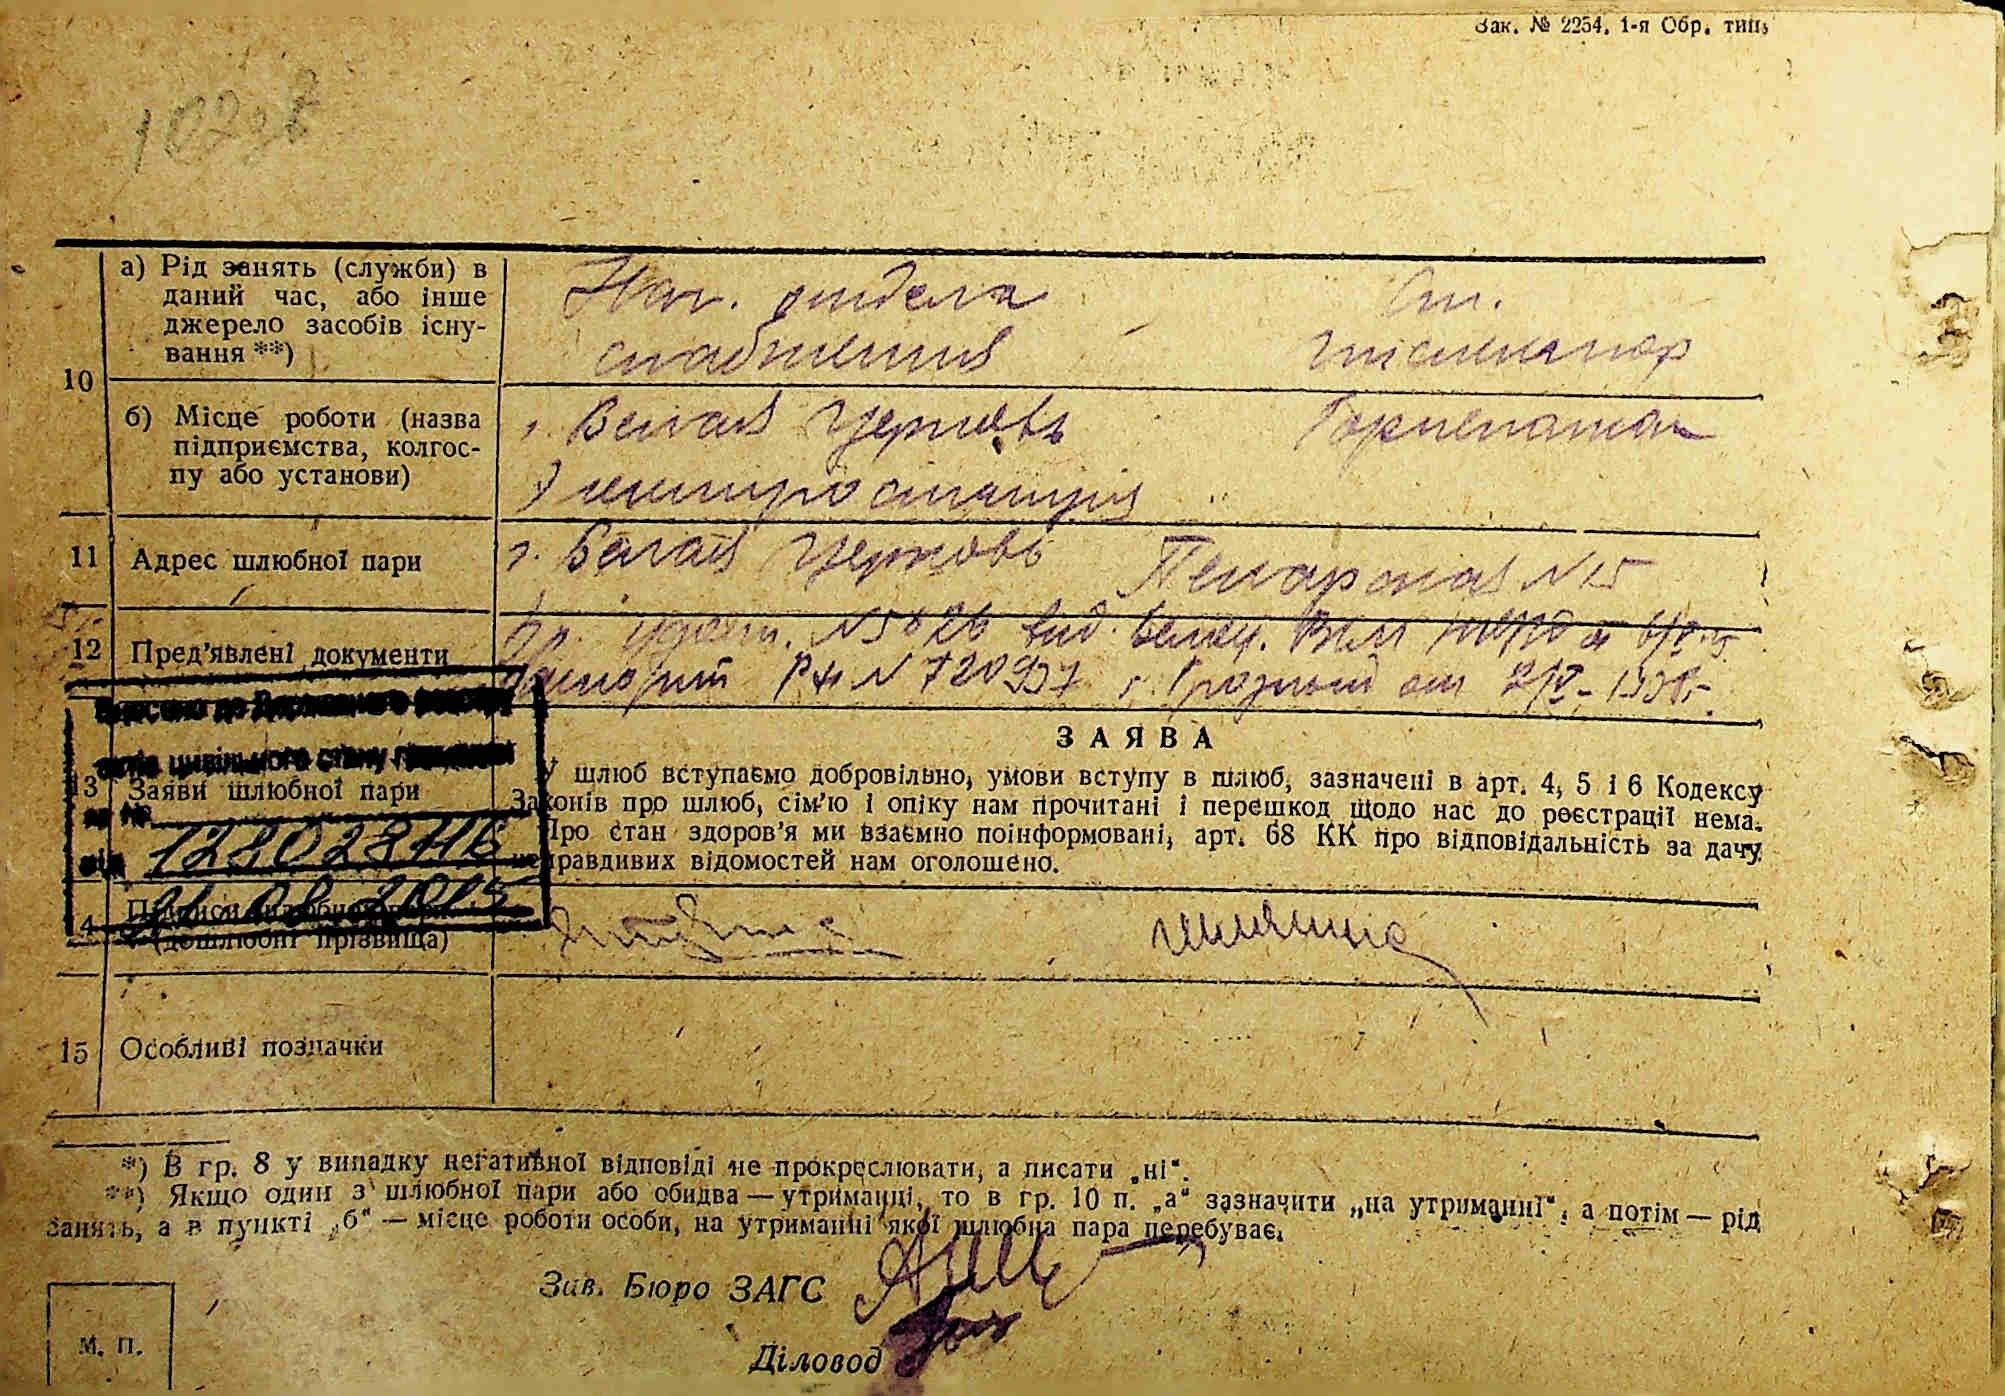 Зак. № 2254. 1-я Обр. тип.
10
а) Рід занять (служби) в
даний час, або інше
джерело засобів існу-
вання **)
Нач. отдела
снабжения
Ст.
б) Місце роботи (назва
підприємства, колгос-
пу або установи)
г. Белая Церковь
Электростанция
11
Адрес шлюбної пари
г. Белая Церковь
Пекарская № 15
12
Пред’явлені документи
Паспорт № 720937 г. Грозный от
ЗАЯВА
13
Заяви шлюбної пари
У шлюб вступаємо добровільно, умови вступу в шлюб, зазначені в арт. 4, 5 і 6 Кодексу
Законів про шлюб, сім’ю і опіку нам прочитані і перешкод щодо нас до реєстрації нема.
Про стан здоров’я ми взаємно поінформовані, арт. 68 КК про відповідальність за дачу
неправдивих відомостей нам оголошено.
до Державного реєстру
цивільного стану громадян
за №
від
Підписи шлюбної пари
(дошлюбні прізвища)
15
Особливі позначки
*) В гр. 8 у випадку негативної відповіді не прокреслювати, а писати „ні“.
**) Якщо один з шлюбної пари або обидва — утриманці, то в гр. 10 п. „а“ зазначити „на утриманні“, а потім — рід
занять, а в пункті „б“ — місце роботи особи, на утриманні якої шлюбна пара перебуває.
Зав. Бюро ЗАГС
Діловод
М. П.